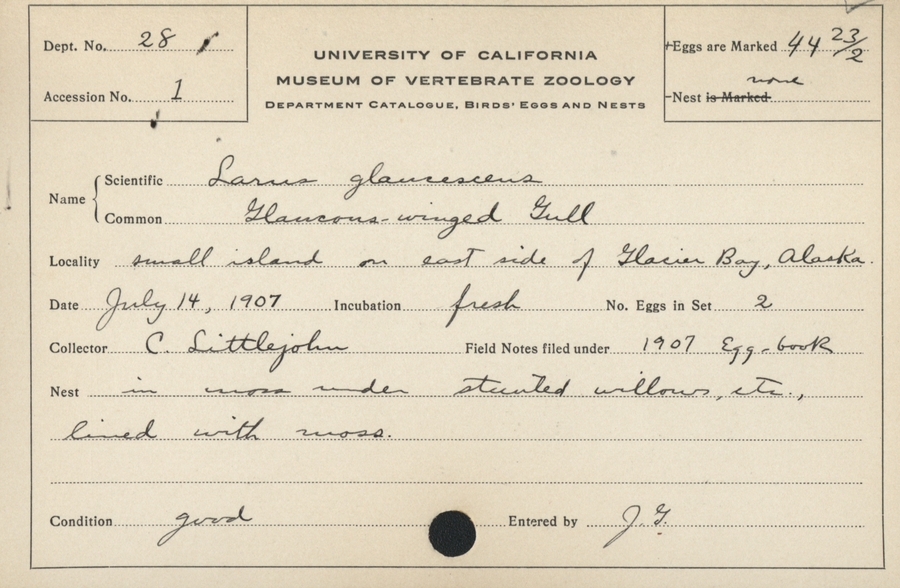 Dept. No. 28
Accession No. 1
UNIVERSITY OF CALIFORNIA
MUSEUM OF VERTEBRATE ZOOLOGY
DEPARTMENT CATALOGUE, BIRDS' EGGS AND NESTS
Eggs are Marked 44 23/2
none
Nest is Marked
Name
Scientific Larus glaucescens
Common Glaucous-winged Gull
Locality small island on east side of Glacier Bay, Alaska.
Date July 14, 1907 Incubation fresh No. Eggs in Set 2
Collector C. Littlejohn Field Notes filed under 1907 Egg-book
Nest in moss under stunted willows, etc.,
lined with moss.
Condition good Entered by J. G.